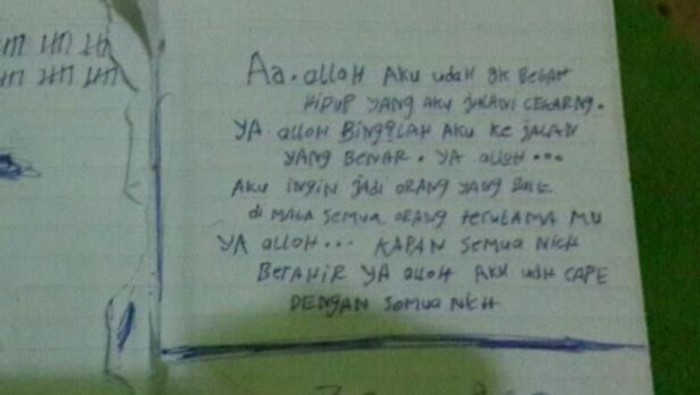 Aa. alloH AKu udaH gk BetaH
HiDUP YANG AKu JALANI CEKARNG.
YA alloH BingBLAH AKu Ke JALAN
YANG BENAR. YA alloH...
AKu ingin jadi ORANG YANG BAiK
di MATA Semua ORANG terutAMA MU
YA alloH... KAPAN Semua NiCH
BeraHiR YA alloH AKU udH CAPE
DENGAN Semua NEH